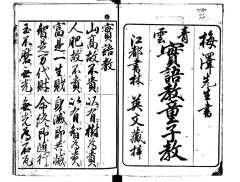 梅澤先生書
寳語教童子教
江都書林 英文藏梓
實語教
山高故不貴 以有樹為貴
人肥故不貴 以有智為貴
富是一生財 身滅即共滅
智是万代財 命終即随行
玉不磨無光 無光為石瓦